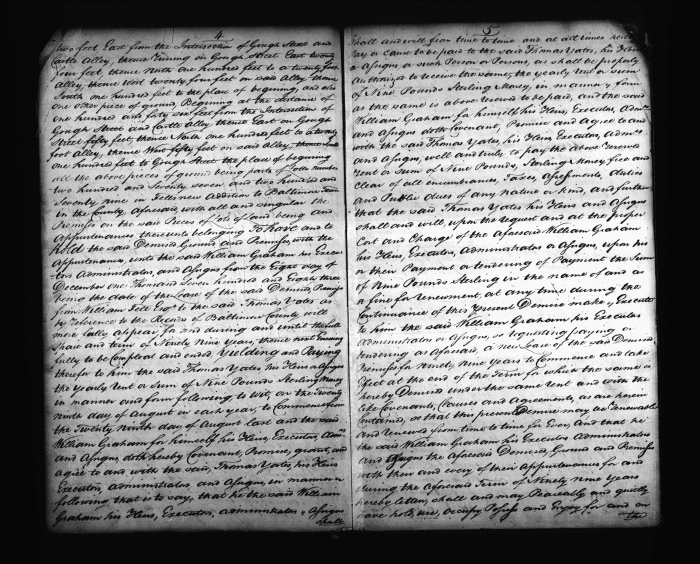 4
two feet East from the Intersection of Gough Street and
Castle Alley, thence Runing on Gough Street East twenty
four feet, thence North one hundred feet to a twenty foot
Alley, thence West twenty four feet on said Alley thence
South one hundred feet to the place of beginning, and also
one other piece of ground, Begining at the distance of
one hundred and forty six feet from the Intersection of
Gough Street and Castle Alley thence East on Gough
Street fifty feet, thence North one hundred feet to a twenty
foot Alley, thence West fifty feet on said Alley, thence South
one hundred feet to Gough Street the place of begining
all the above pieces of ground being parts of Lotts Number
two hundred and Seventy seven and two hundred and
Seventy nine in Fellsnew Addition to Baltimore Town
in the County aforesaid with all and singular the
Premises on the said Pieces of Lots of land being and
Appurtenances thereunto belonging To have and to
hold the said Demised Ground and Premises, with the
Appurtenances, unto the said William Graham his Execu
=tors Administrators, and Assigns from the Eight day of
December one Thousand Seven hundred and Eighty three
being the date of the Lease of the said Demised Premises
from William Fell Esqr to the said Thomas Yates as
by Reference to the Records of Baltimore County will
more fully appear for and during and until the full
Space and term of Ninety Nine Years, thence next Ensuing
fully to be Compleat and ended Yielding and Paying
therefor to him the said Thomas Yates his Heirs or Assigns
the yearly Rent or Sum of Nine Pounds Sterling Money
in manner and form following, to wit, on the Twenty
ninth day of August in each year, to Commence from
the Twenty Ninth day of August last and the said
William Graham for himself his Heirs, Executors, Admrs
and Assigns, doth hereby Covenant, Promise, grant, and
agree to and with the said, Thomas Yates, his Heirs
Executors, administrators, and Assigns, in manner
following that is to say, that he the said William
Graham his Heirs, Executors, administrators, Assigns
shall
5
shall and will from time to time and at all times
Pay or Cause to be paid to the said Thomas Yates, his Heirs
or Assigns, or such Person or Persons, as shall be properly
Authorized to receive the same, the yearly Rent or Sum
of Nine Pounds Sterling Money, in manner & form
as the same is above reserved to be paid, and the said
William Graham for himself his Heirs, Executors, Admrs
and Assigns doth Covenant, Promise and Agree to and
with the said Thomas Yates, his Heirs Executors, Admrs
and Assigns, well and truly to pay the above reserved
Rent or Sum of Nine Pounds, Sterling Money free and
Clear of all encumbrances, Taxes, Assessments, duties
and Public dues of any nature or kind, and further
that the said Thomas Yates his Heirs and Assigns
shall and will upon the request and at the proper
Cost and Charge of the aforesaid William Graham
his Heirs, Executors, Administrators or Assigns, upon his
or their Payment or tendering of Payment the Sum
of Nine Pounds Sterling in the name of and as
a fine for renewment, at any time during the
Continuance of this Present Demise make & Execute
to him the said William Graham his Executors
administrators or Assigns, so requesting paying or
tendering as aforesaid, a new Lease of the said Demised
Premises for Ninety Nine Years to Commence and take
Effect at the end of the Term for which the same is
hereby Demised under the same rent and with the
like Covenants, Clauses and Agreements, as are herein
Contained, so that this present Demise may be Renewable
and Renewed from time to time for Ever, and that he
the said William Graham his Executors Administrators
and Assigns the aforesaid Demised, Ground and Premises
with their and every of their Appurtenances for and
during the aforesaid Term of Ninety Nine Years
hereby letten, shall and may Peaceably and quietly
have hold, use, Occupy Possess and Enjoy for and on
the